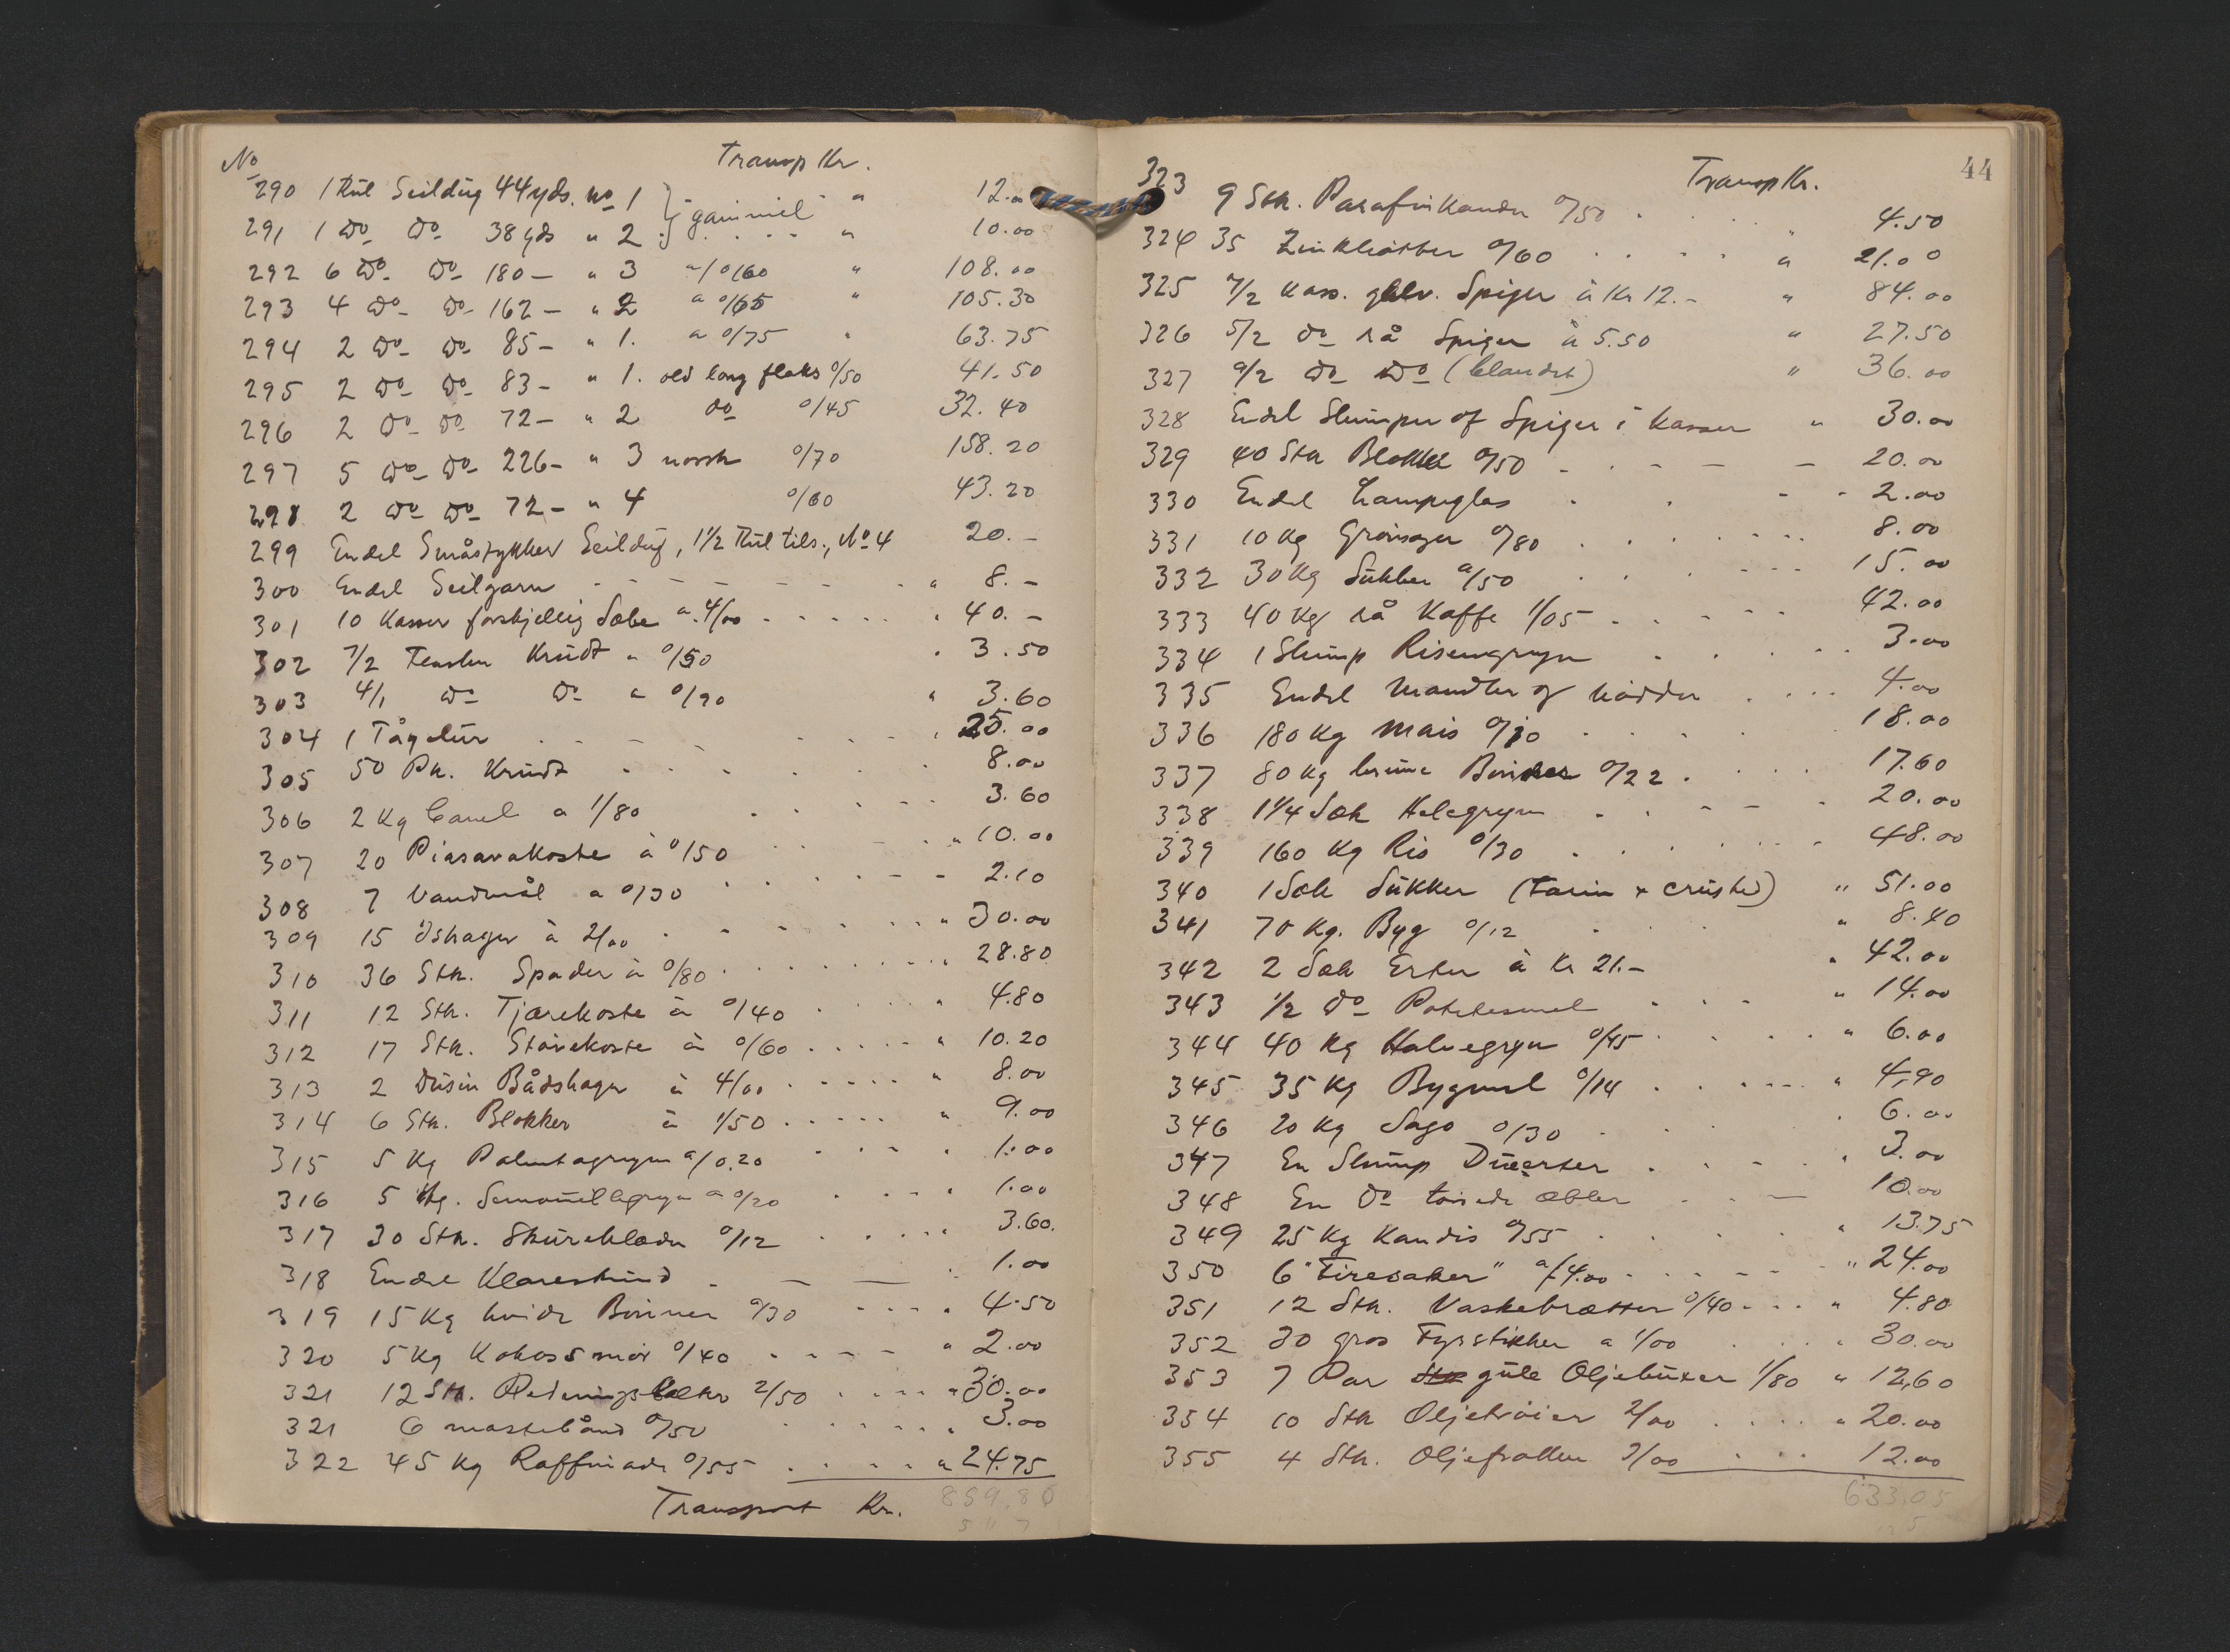 No Transp Kr.
290 1 Rul Seildug 44 yds. No 1 } gammel " 12.00
291 1 Do Do 38 yds " 2 " 10.00
292 6 Do Do 180 – " 3 a/0/60 " 108.00
293 4 Do Do 162 – " 2 a 0/65 " 105.30
294 2 Do Do 85 – " 1. a 0/75 " 63.75
295 2 Do Do 83 – " 1. old long flaks 0/50 41.50
296 2 Do Do 72 – " 2 do 0/45 32.40
297 5 Do Do 226 – " 3 norsk 0/70 158.20
298 2 Do Do 72 – " 4 0/60 43.20
299 Endel Småstykker Seildug, 1½ Rul tils., No 4 20.–
300 Endel Seilgarn " 8.–
301 10 Kasser forskjellig Sæbe a 4/00 " 40.–
302 7/2 Tønder Krudt a 0/50 " 3.50
303 4/1 Do Do a 0/90 " 3.60
304 1 Tågelur " 25.00
305 50 Pk. Krudt 8.00
306 2 Kg Canel a 1/80 3.60
307 20 Piasavakoste à 0/50 " 10.00
308 7 Vandmål a 0/30 2.10
309 15 Øshager à 2/00 " 30.00
310 36 Stk. Spader à 0/80 " 28.80
311 12 Stk. Tjærekoste à 0/40 " 4.80
312 17 Stk. Støvekoste à 0/60 " 10.20
313 2 Dusin Bådshager à 4/00 " 8.00
314 6 Stk. Blokker à 1/50 " 9.00
315 5 Kg Palmtagryn a/0.20 " 1.00
316 5 Kg. Semouillegryn a 0/20 " 1.00
317 30 Stk. Skureklæder 0/12 " 3.60.
318 Endel Klareskind 1.00
319 15 Kg hvide Bønner 0/30 " 4.50
320 5 Kg Kokossmør 0/40 " 2.00
321 12 Stk. Redningsbælter 2/50 " 30.00
321 6 mastebånd 0/50 " 3.00
322 45 Kg Raffinade 0/55 " 24.75
Transport Kr. 859.80
44
Transp Kr.
323 9 Stk. Parafinkander 0/50 " 4.50
324 35 Zinkbøtter 0/60 " 21.00
325 7/2 Kass. galv. Spiger à Kr 12.– " 84.00
326 5/2 do rå Spiger à 5.50 " 27.50
327 9/2 Do Do (blandet) " 36.00
328 Endel Slumper af Spiger i Kasser " 30.00
329 40 Stk Blokke 0/50 20.00
330 Endel Lampeglas 2.00
331 10 Kg Grønsager 0/80 8.00
332 30 Kg Sukker 0/50 15.00
333 40 Kg rå Kaffe 1/05 42.00
334 1 Slump Risengryn 3.00
335 Endel Mandler og nødder 4.00
336 180 Kg Mais 0/10 18.00
337 80 Kg brune Bønner 0/22 17.60
338 1¼ Sæk Helegryn 20.00
339 160 Kg Ris 0/30 48.00
340 1 Sæk Sukker (Farin + crushed) " 51.00
341 70 Kg. Byg 0/12 " 8.40
342 2 Sæk Erter à Kr 21.– " 42.00
343 ½ Do Potetesmel " 14.00
344 40 Kg Halvegryn 0/15 " 6.00
345 35 Kg Bygmel 0/14 " 4,90
346 20 Kg Sago 0/30 " 6.00
347 En Slump Dueerter " 3.00
348 En Do tørrede æbler 10.00
349 25 Kg Kandis 0/55 " 13.75
350 6 "Firesaker" a/4.00 " 24.00
351 12 Stk. Vaskebrætter 0/40 " 4.80
352 30 gros Fyrstikker a 1/00 " 30.00
353 7 Par gule Oljebuxer 1/80 " 12,60
354 10 Stk Oljetrøier 2/00 " 20.00
355 4 Stk. Oljefrakker 3/00 12.00
633.05